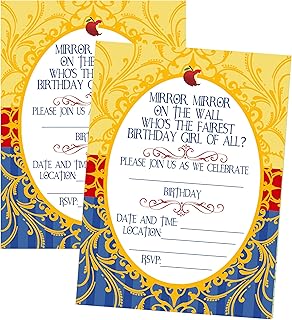 MIRROR MIRROR
ON THE WALL,
WHO'S THE FAIREST
BIRTHDAY GIRL OF ALL?
PLEASE JOIN US AS WE
BIRTH
DATE AND TIME:
LOCATION:
RSVP:
MIRROR MIRROR
ON THE WALL,
WHO'S THE FAIREST
BIRTHDAY GIRL OF ALL?
PLEASE JOIN US AS WE CELEBRATE
BIRTHDAY
DATE AND TIME:
LOCATION:
RSVP: